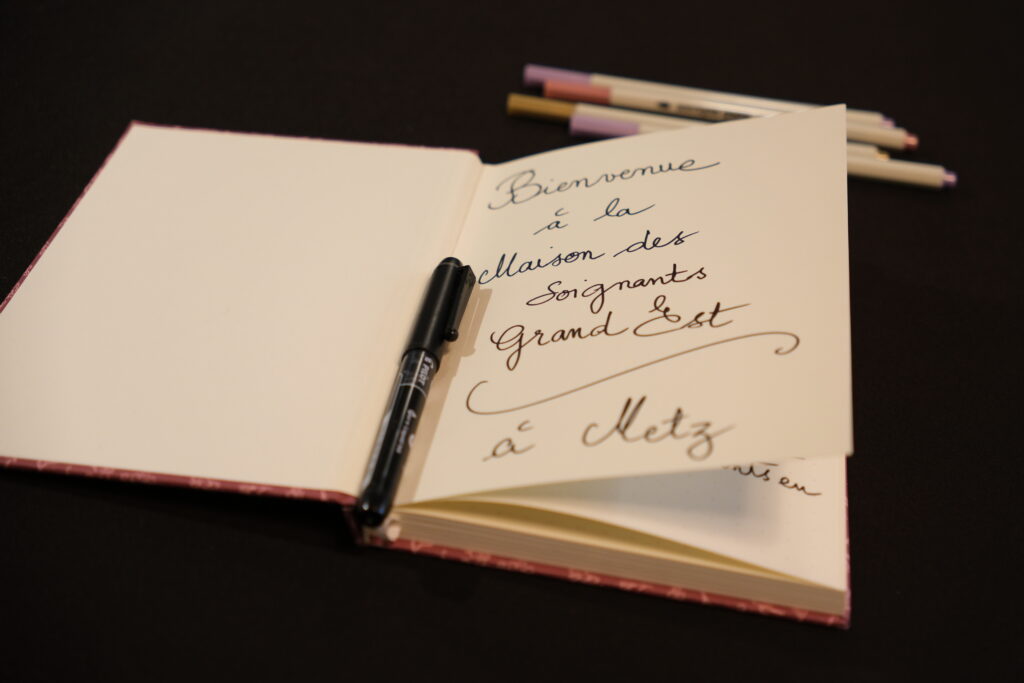 Bienvenue
à la
Maison des
Soignants
Grand Est
à Metz
en
PILOT